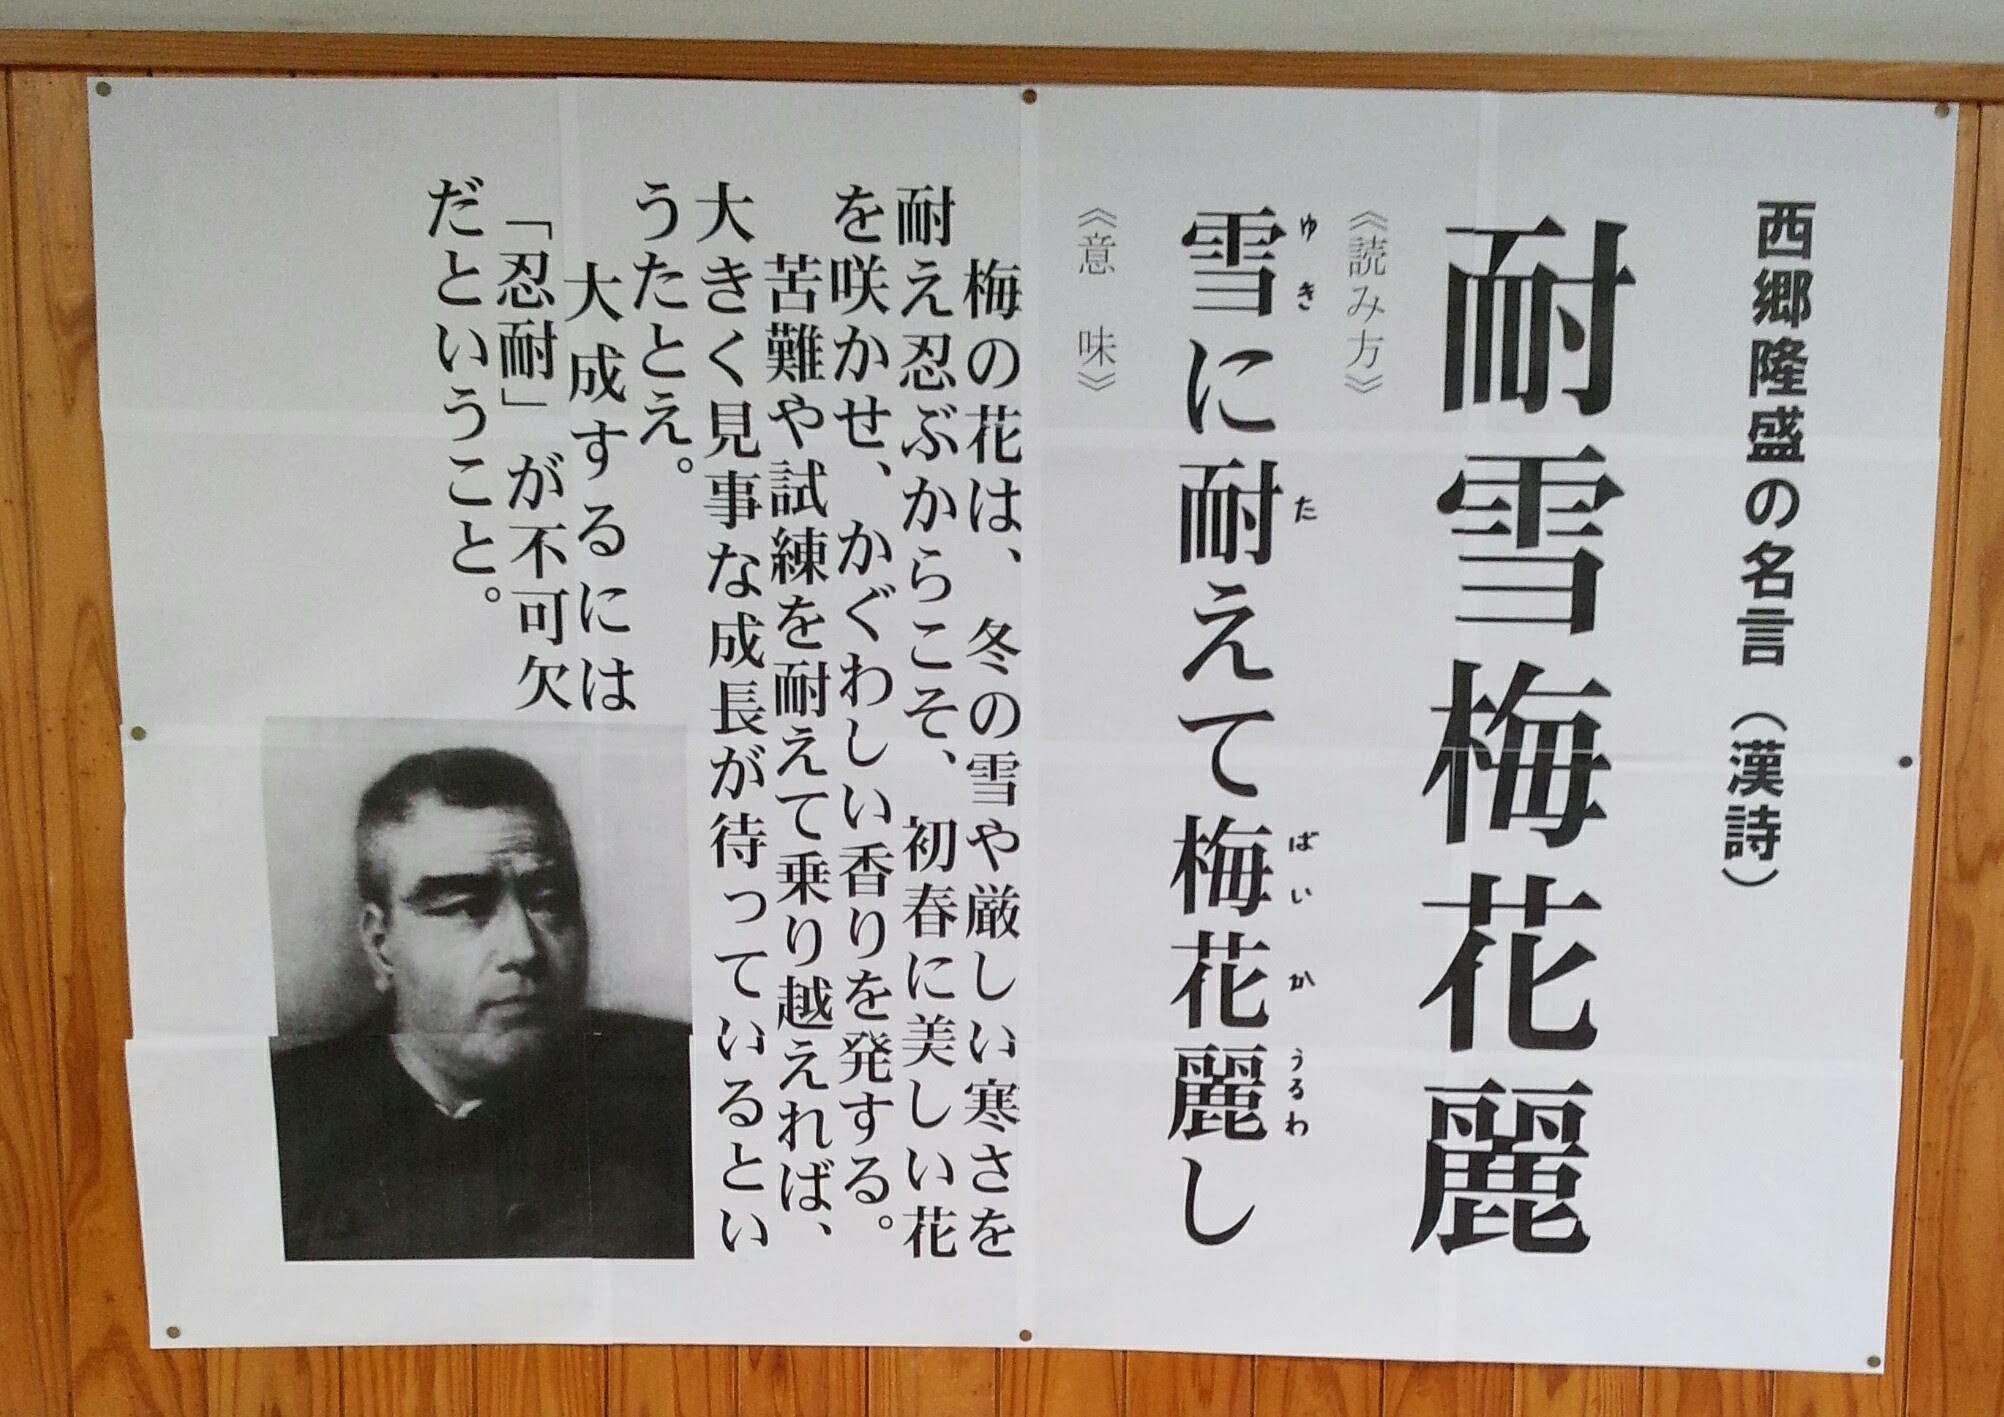 西郷隆盛の名言（漢詩）
耐雪梅花麗
《読み方》
雪に耐えて梅花麗し
ゆき た ばい か うるわ
《意　味》
　梅の花は、冬の雪や厳しい寒さを
耐え忍ぶからこそ、初春に美しい花
を咲かせ、かぐわしい香りを発する。
　苦難や試練を耐えて乗り越えれば、
大きく見事な成長が待っているとい
うたとえ。
　大成するには
「忍耐」が不可欠
だということ。